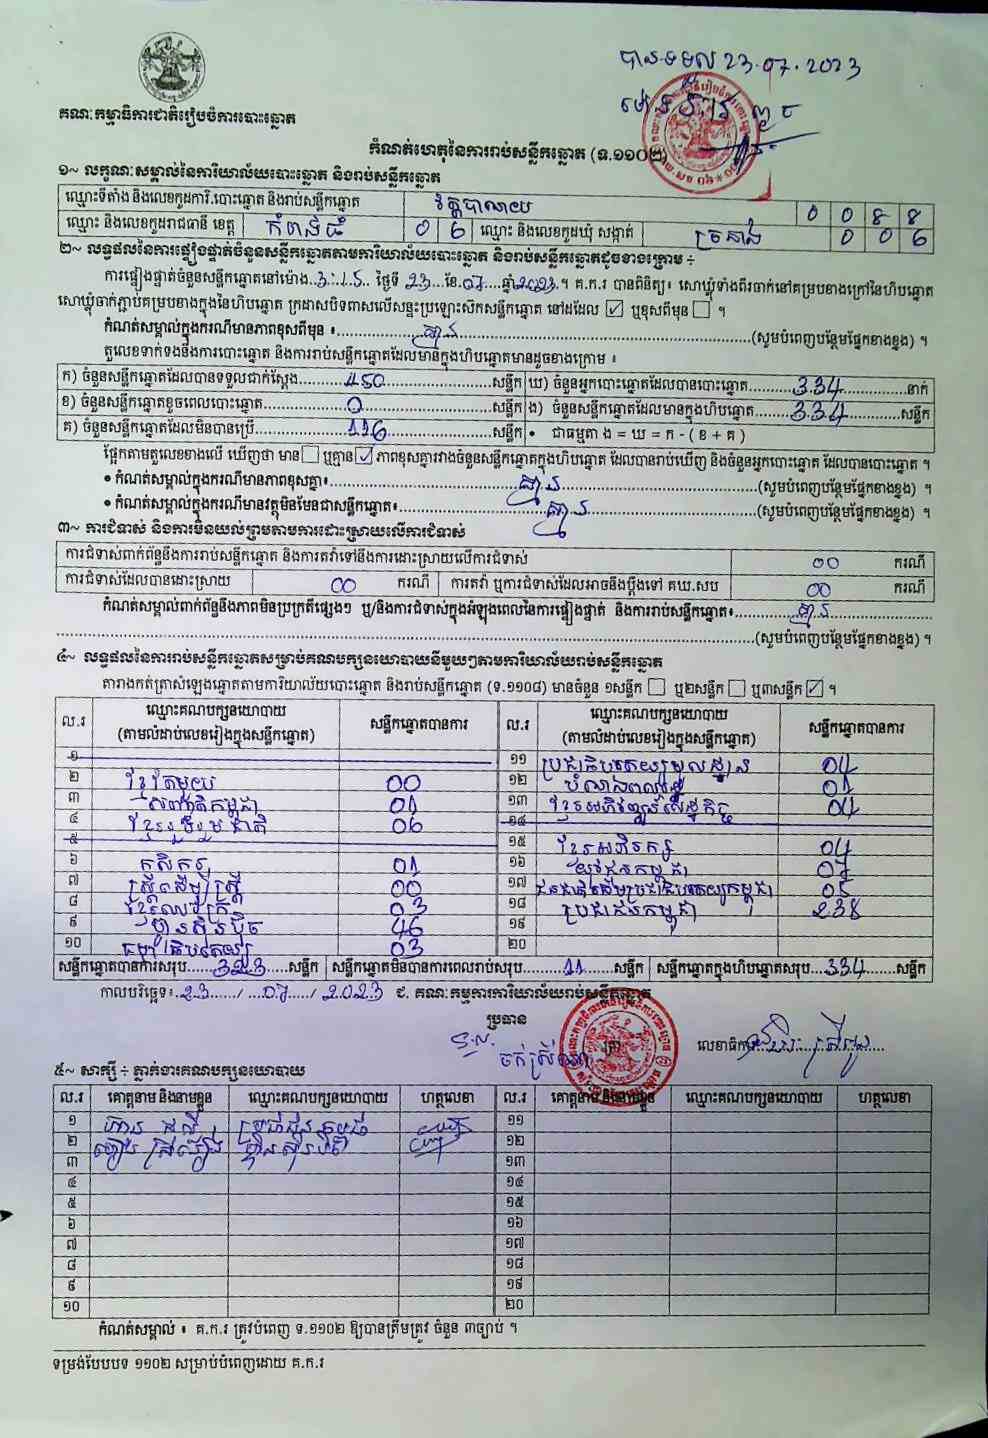 បានទទួល 23.07.2023
គណៈកម្មាធិការជាតិរៀបចំការបោះឆ្នោត
កំណត់ហេតុនៃការរាប់សន្លឹកឆ្នោត (ទ.១១០២)
១~ លក្ខណៈសម្គាល់នៃការិយាល័យបោះឆ្នោត និងរាប់សន្លឹកឆ្នោត
ឈ្មោះទីតាំង និងលេខកូដការិ.បោះឆ្នោត និងរាប់សន្លឹកឆ្នោត 0 0 8 8
ឈ្មោះ និងលេខកូដរាជធានី ខេត្ត កំពង់ធំ 0 6 ឈ្មោះ និងលេខកូដឃុំ សង្កាត់ 0 0 6
២~ លទ្ធផលនៃការផ្ទៀងផ្ទាត់ចំនួនសន្លឹកឆ្នោតតាមការិយាល័យបោះឆ្នោត និងរាប់សន្លឹកឆ្នោតដូចខាងក្រោម ÷
ការផ្ទៀងផ្ទាត់ចំនួនសន្លឹកឆ្នោតនៅម៉ោង 3:15 ថ្ងៃទី 23 ខែ 07 ឆ្នាំ 2023 ។ គ.ក.រ បានពិនិត្យ៖ សោឃ្លុំទាំងពីរចាក់នៅគម្របខាងក្រៅនៃហិបឆ្នោត
សោឃ្លុំចាក់ភ្ជាប់គម្របខាងក្នុងនៃហិបឆ្នោត ក្រដាសបិទពាសលើសន្ទះប្រឡោះសិកសន្លឹកឆ្នោត នៅដដែល ☑ ឬខុសពីមុន ☐ ។
កំណត់សម្គាល់ក្នុងករណីមានភាពខុសពីមុន ៖ គ្មាន (សូមបំពេញបន្ថែមផ្នែកខាងខ្នង) ។
តួលេខទាក់ទងនឹងការបោះឆ្នោត និងការរាប់សន្លឹកឆ្នោតដែលមានក្នុងហិបឆ្នោតមានដូចខាងក្រោម ៖
ក) ចំនួនសន្លឹកឆ្នោតដែលបានទទួលជាក់ស្តែង 450 សន្លឹក ឃ) ចំនួនអ្នកបោះឆ្នោតដែលបានបោះឆ្នោត 334 នាក់
ខ) ចំនួនសន្លឹកឆ្នោតខូចពេលបោះឆ្នោត 0 សន្លឹក ង) ចំនួនសន្លឹកឆ្នោតដែលមានក្នុងហិបឆ្នោត 334 សន្លឹក
គ) ចំនួនសន្លឹកឆ្នោតដែលមិនបានប្រើ 116 សន្លឹក • ជាធម្មតា ង = ឃ = ក - ( ខ + គ )
ផ្អែកតាមតួលេខខាងលើ ឃើញថា មាន ☐ ឬគ្មាន ☑ ភាពខុសគ្នារវាងចំនួនសន្លឹកឆ្នោតក្នុងហិបឆ្នោត ដែលបានរាប់ឃើញ និងចំនួនអ្នកបោះឆ្នោត ដែលបានបោះឆ្នោត ។
• កំណត់សម្គាល់ក្នុងករណីមានភាពខុសគ្នា៖ គ្មាន (សូមបំពេញបន្ថែមផ្នែកខាងខ្នង) ។
• កំណត់សម្គាល់ក្នុងករណីមានវត្ថុមិនមែនជាសន្លឹកឆ្នោត៖ គ្មាន (សូមបំពេញបន្ថែមផ្នែកខាងខ្នង) ។
៣~ ការជំទាស់ និងការមិនយល់ព្រមតាមការដោះស្រាយលើការជំទាស់
ការជំទាស់ពាក់ព័ន្ធនឹងការរាប់សន្លឹកឆ្នោត និងការតវ៉ាទៅនឹងការដោះស្រាយលើការជំទាស់ 00 ករណី
ការជំទាស់ដែលបានដោះស្រាយ 00 ករណី ការតវ៉ា ឬការជំទាស់ដែលអាចនឹងប្តឹងទៅ គឃ.សប 00 ករណី
កំណត់សម្គាល់ពាក់ព័ន្ធនឹងភាពមិនប្រក្រតីផ្សេងៗ ឬ/និងការជំទាស់ក្នុងអំឡុងពេលនៃការផ្ទៀងផ្ទាត់ និងការរាប់សន្លឹកឆ្នោត៖ គ្មាន
(សូមបំពេញបន្ថែមផ្នែកខាងខ្នង) ។
៤~ លទ្ធផលនៃការរាប់សន្លឹកឆ្នោតសម្រាប់គណបក្សនយោបាយនីមួយៗតាមការិយាល័យរាប់សន្លឹកឆ្នោត
តារាងកត់ត្រាសំឡេងឆ្នោតតាមការិយាល័យបោះឆ្នោត និងរាប់សន្លឹកឆ្នោត (ទ.១១០៨) មានចំនួន ១សន្លឹក ☐ ឬ២សន្លឹក ☐ ឬ៣សន្លឹក ☑ ។
ល.រ ឈ្មោះគណបក្សនយោបាយ (តាមលំដាប់លេខរៀងក្នុងសន្លឹកឆ្នោត) សន្លឹកឆ្នោតបានការ ល.រ ឈ្មោះគណបក្សនយោបាយ (តាមលំដាប់លេខរៀងក្នុងសន្លឹកឆ្នោត) សន្លឹកឆ្នោតបានការ
១ ១១ ប្រជាធិបតេយ្យមូលដ្ឋាន 04
២ ខ្មែរតែមួយ 00 ១២ 01
៣ សញ្ជាតិកម្ពុជា 01 ១៣ ខ្មែរអភិវឌ្ឍន៍សេដ្ឋកិច្ច 04
៤ ខ្មែររួបរួមជាតិ 06 ១៤
៥ ១៥ ខ្មែរអភិរក្ស 04
៦ កសិករ 01 ១៦ យុវជនកម្ពុជា 07
៧ ស្ត្រីដើម្បីស្ត្រី 00 ១៧ ជនជាតិដើមប្រជាធិបតេយ្យកម្ពុជា 05
៨ ខ្មែរ 03 ១៨ ប្រជាជនកម្ពុជា 238
៩ ហ្វ៊ុនស៊ិនប៉ិច 46 ១៩
១០ ធម្មាធិបតេយ្យ 03 ២០
សន្លឹកឆ្នោតបានការសរុប 323 សន្លឹក សន្លឹកឆ្នោតមិនបានការពេលរាប់សរុប 11 សន្លឹក សន្លឹកឆ្នោតក្នុងហិបឆ្នោតសរុប 334 សន្លឹក
កាលបរិច្ឆេទ៖ 23 / 07 / 2023 ជ. គណៈកម្មការការិយាល័យរាប់សន្លឹកឆ្នោត
ប្រធាន
លេខាធិការ
៥~ សាក្សី ÷ ភ្នាក់ងារគណបក្សនយោបាយ
ល.រ គោត្តនាម និងនាមខ្លួន ឈ្មោះគណបក្សនយោបាយ ហត្ថលេខា ល.រ គោត្តនាម និងនាមខ្លួន ឈ្មោះគណបក្សនយោបាយ ហត្ថលេខា
១ ប្រជាជនកម្ពុជា ១១
២ ហ្វ៊ុនស៊ិនប៉ិច ១២
៣ ១៣
៤ ១៤
៥ ១៥
៦ ១៦
៧ ១៧
៨ ១៨
៩ ១៩
១០ ២០
កំណត់សម្គាល់ ៖ គ.ក.រ ត្រូវបំពេញ ទ.១១០២ ឱ្យបានត្រឹមត្រូវ ចំនួន ៣ច្បាប់ ។
ទម្រង់បែបបទ ១១០២ សម្រាប់បំពេញដោយ គ.ក.រ